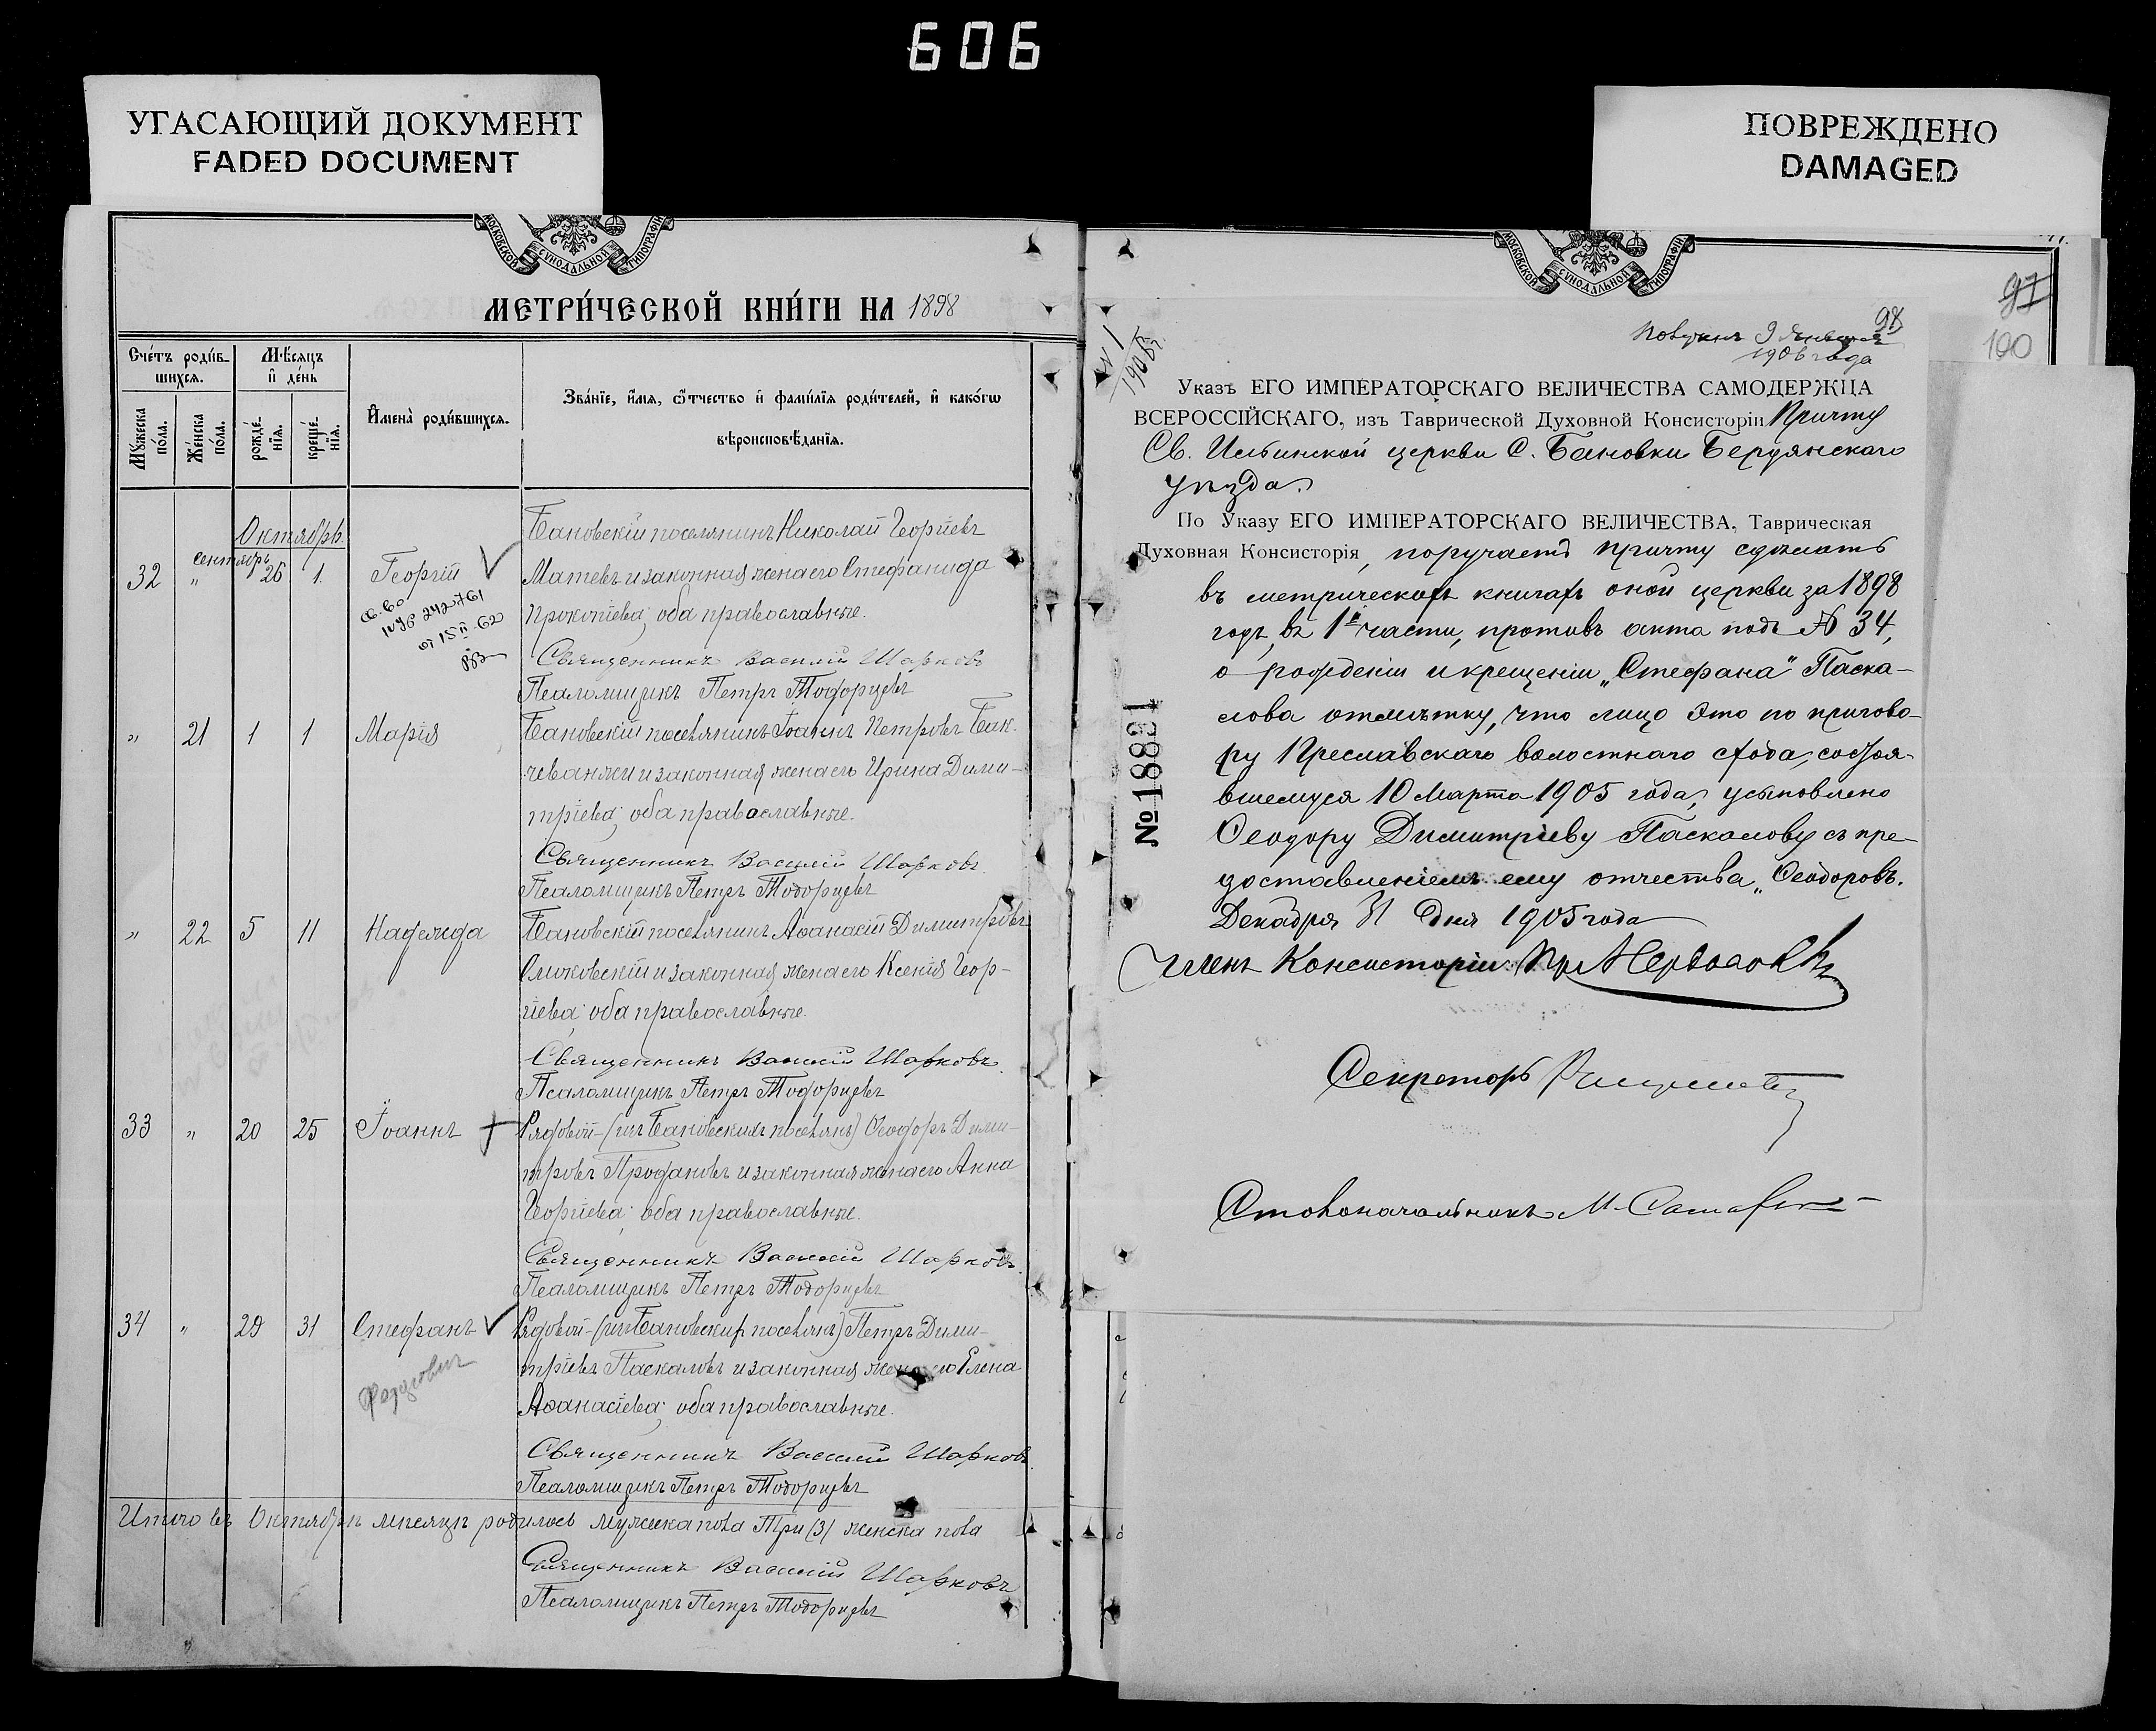 606
УГАСАЮЩИЙ ДОКУМЕНТ
FADED DOCUMENT
ПОВРЕЖДЕНО
DAMAGED
МОСКОВСКОЙ СѴНОДАЛЬНОЙ ТИПОГРАФІИ
МЕТРИ́ЧЕСКОЙ КНИ́ГИ НА 1898
Сче́тъ роди́в-
шихся.
Мѣ́сяцъ
и҆ де́нь
Мꙋ́жеска по́ла.
Же́нска по́ла.
рожде́-
нїя.
креще́-
нїя.
И҆мена̀ роди́вшихся.
Зва́нїе, и҆́мя, ѻ҆́тчество и҆ фами́лїя роди́телей, и҆ како́гѡ
вѣроисповѣ́данїя.
Октябрь
сентябрь
32 " 26 1. Георгій
Бановскій поселянинъ Николай Георгіевъ
Матевъ и законная жена его Стефанида
Прокопіева; оба православные.
св.во
242761
от 15 II 62
Священникъ Василій Шарковъ
Псаломщикъ Петръ Тодорцевъ
" 21 1 1 Марія
Бановскій поселянинъ Іоаннъ Петровъ Бак-
чеванжи и законная жена его Ирина Дими-
тріева; оба православные.
Священникъ Василій Шарковъ
Псаломщикъ Петръ Тодорцевъ
" 22 5 11 Надежда
Бановскій поселянинъ Аѳанасій Димитровъ
и законная жена его Ксенія Геор-
гіева; оба православные.
Священникъ Василій Шарковъ.
Псаломщикъ Петръ Тодорцевъ
33 " 20 25 Іоаннъ
Рядовой (изъ Бановскихъ поселянъ) Ѳеодоръ Дими-
тровъ Продановъ и законная жена его Анна
Георгіева; оба православные.
Священникъ Василій Шарковъ.
Псаломщикъ Петръ Тодорцевъ
34 " 29 31 Стефанъ
Рядовой (изъ Бановскихъ поселянъ) Петръ Дими-
тріевъ Паскаловъ и законная жена его Елена
Аѳанасіева; оба православные.
Федорович
Священникъ Василій Шарковъ
Псаломщикъ Петръ Тодорцевъ
Итого въ Октябрѣ мѣсяцѣ родилось мужеска пола Три (3) женска пола
Священникъ Василій Шарковъ
Псаломщикъ Петръ Тодорцевъ
МОСКОВСКОЙ СѴНОДАЛЬНОЙ ТИПОГРАФІИ
97
98
100
№ 1
Получен 9 Января
1906 года
Указъ ЕГО ИМПЕРАТОРСКАГО ВЕЛИЧЕСТВА САМОДЕРЖЦА
ВСЕРОССІЙСКАГО, изъ Таврической Духовной Консисторіи Причту
Св. Ильинской церкви С. Бановки Бердянскаго
уѣзда.
По Указу ЕГО ИМПЕРАТОРСКАГО ВЕЛИЧЕСТВА, Таврическая
Духовная Консисторія, поручаетъ причту сдѣлать
въ метрическихъ книгахъ оной церкви за 1898
годъ, въ 1й части, противъ акта подъ № 34,
о рожденіи и крещеніи „Стефана" Паска-
лова отмѣтку, что лицо это по пригово-
ру Преславскаго волостнаго схода, состоя-
вшемуся 10 Марта 1905 года, усыновлено
Ѳеодору Димитріеву Паскалову съ пре-
доставленіемъ ему отчества „Ѳеодоровъ.
Декабря 31 дня 1905 года
№ 18821
Членъ Консисторіи
Секретарь
Столоначальникъ М.